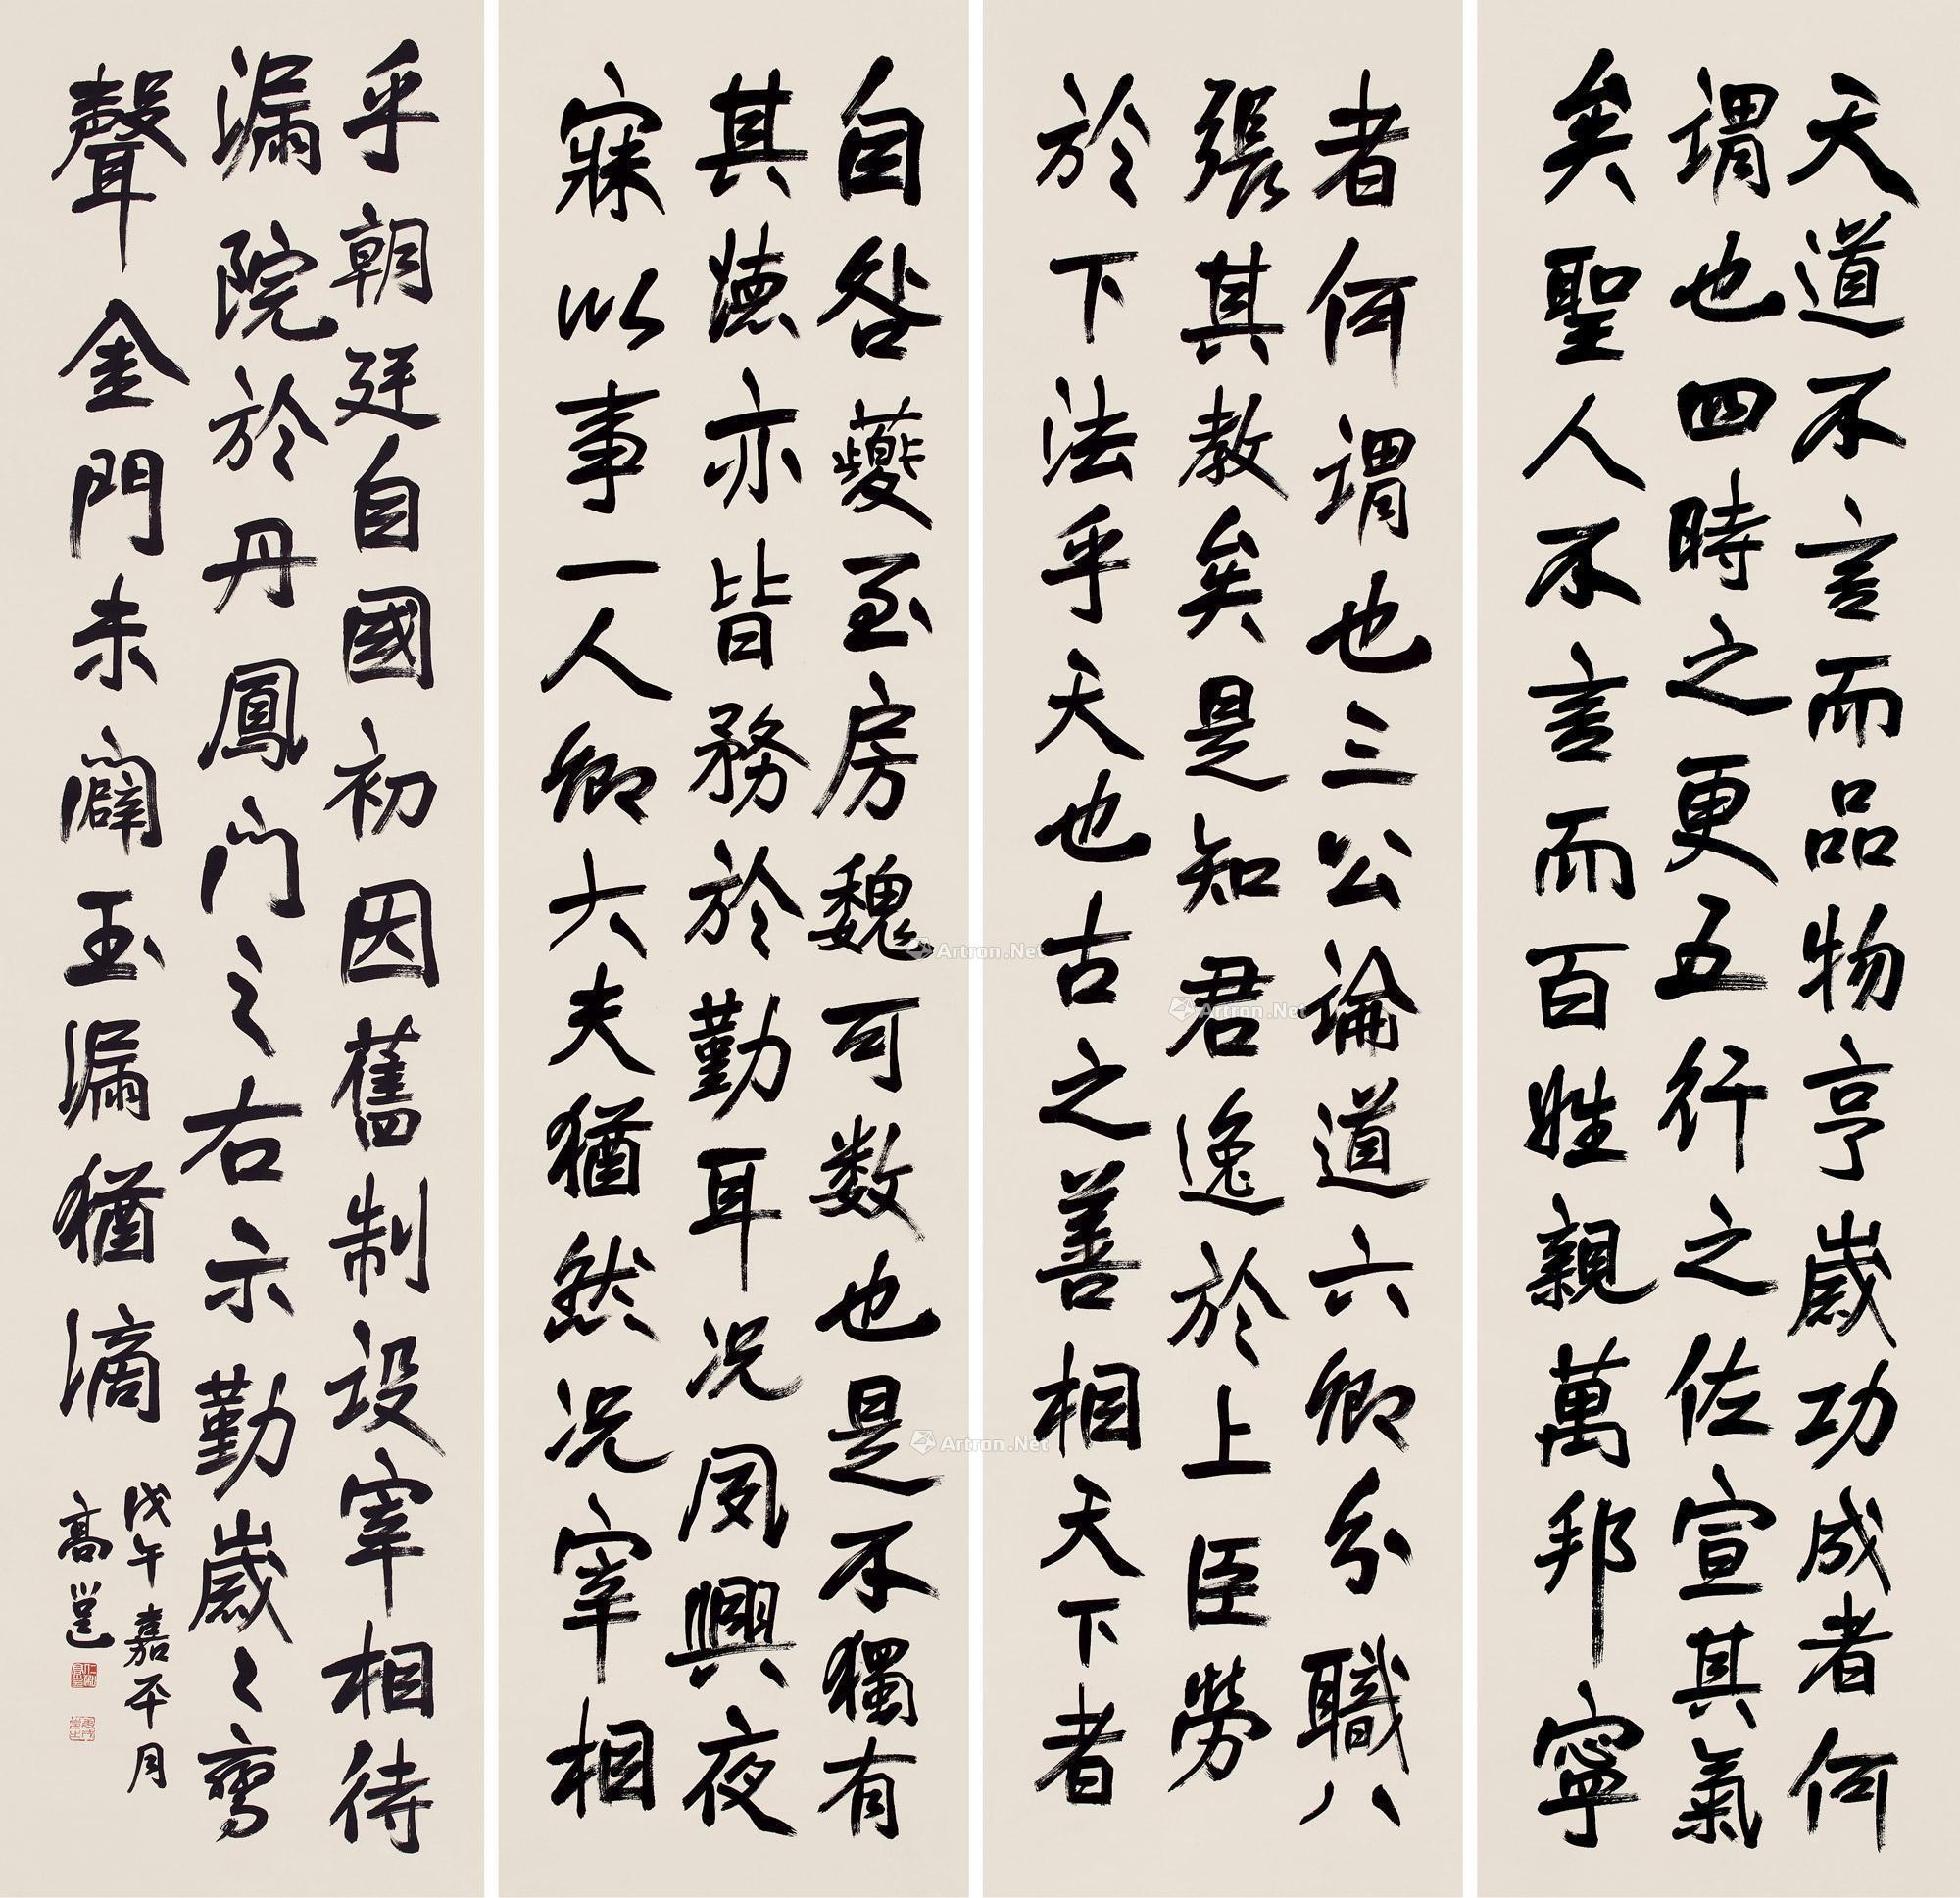 天道不言而品物亨歲功成者何
謂也四時之更五行之佐宣其氣
矣聖人不言而百姓親萬邦寧
者何謂也三公論道六卿分職八
張其教矣是知君逸於上臣勞
於下法乎天也古之善相天下者
自咎夔至房魏可数也是不獨有
其德亦皆務於勤耳况夙興夜
寐以事一人卿大夫猶然况宰相
乎朝廷自國初因舊制設宰相待
漏院於丹鳳門之右示勤歲〻鸞
聲金門未闢玉漏猶滴
戊午嘉平月
高邕
Artron.Net
Artron.Net
Artron.Net